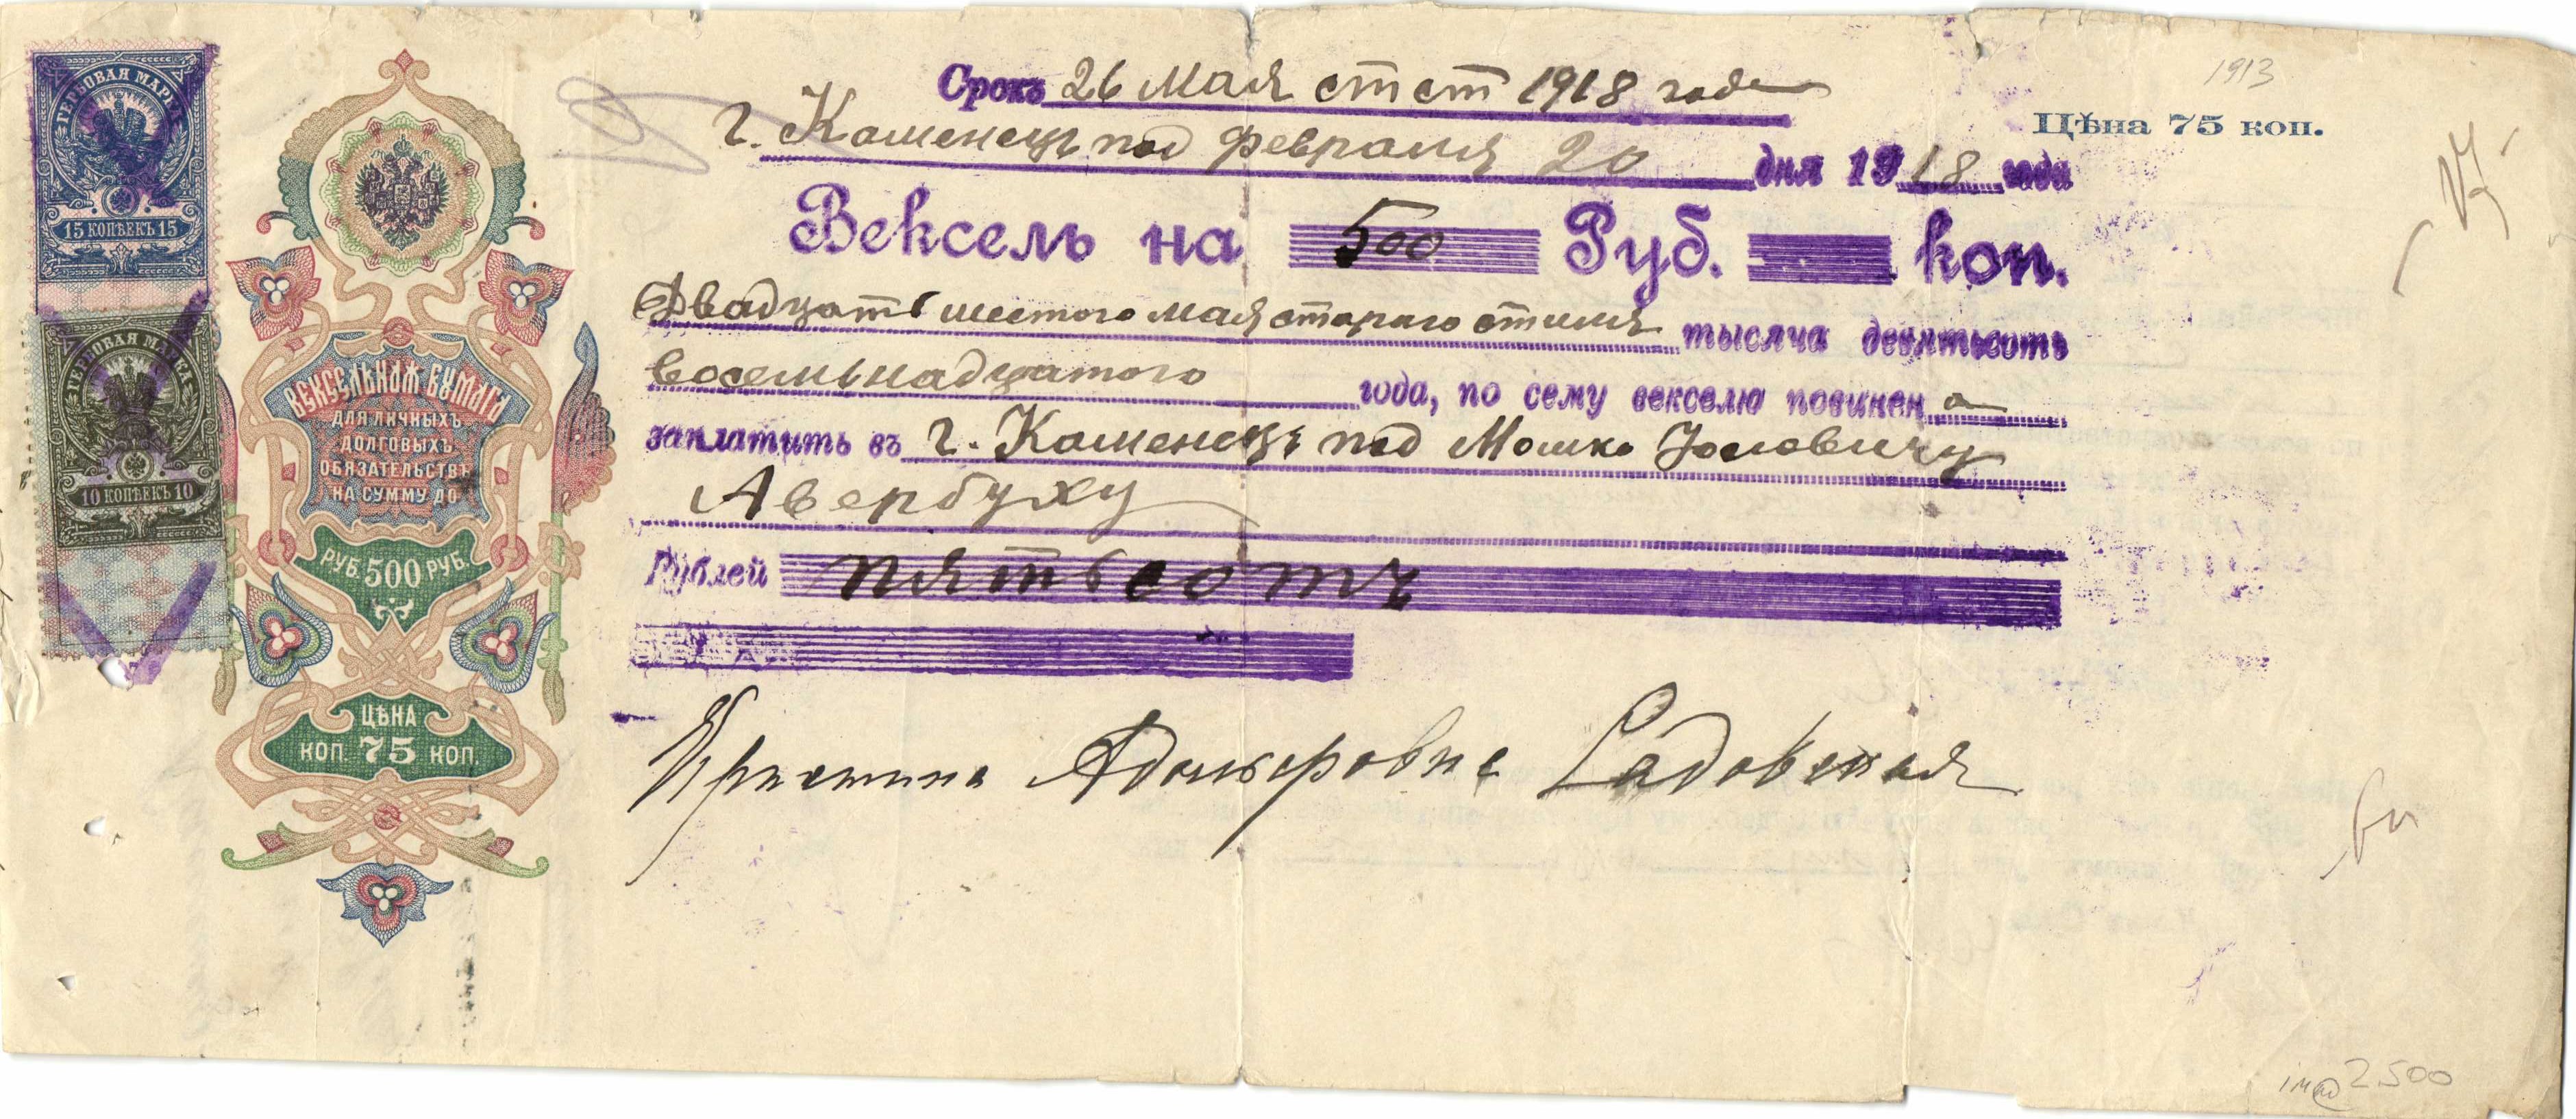 1913
Срокъ 26 мая ст ст 1918 года
Цѣна 75 коп.
г. Каменецъ под февраля 20 дня 1918 года
Вексель на 500 Руб. коп.
Двадцать шестого мая стараго стиля тысяча девятьсотъ
восемьнадцатого года, по сему векселю повинен а
заплатить въ г. Каменецъ под Мошко Іосиовичу
Авербуху
Рублей пятьсотъ
Адольфовна Садовская
ГЕРБОВАЯ МАРКА
15 КОПѢЕКЪ 15
ГЕРБОВАЯ МАРКА
10 КОПѢЕКЪ 10
ВЕКСЕЛЬНАЯ БУМАГА
ДЛЯ ЛИЧНЫХЪ
ДОЛГОВЫХЪ
ОБЯЗАТЕЛЬСТВЪ
НА СУММУ ДО
РУБ. 500 РУБ.
ЦѢНА
КОП. 75 КОП.
2500